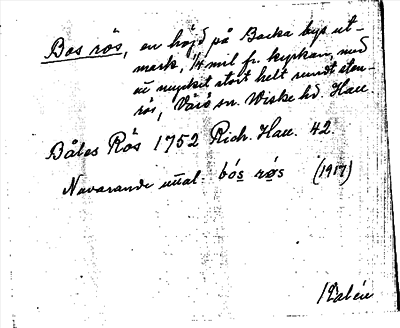 Bos rös, en höjd på Backa bys ut-
mark, 1/4 mil fr. kyrkan, med
ett mycket stort helt rundt sten-
rös, Värö sn. Wiske hd. Hall.
Båtes Rös 1752 Rich. Hall. 42.
Nuvarande uttal: bós røs (1917)
Kalén